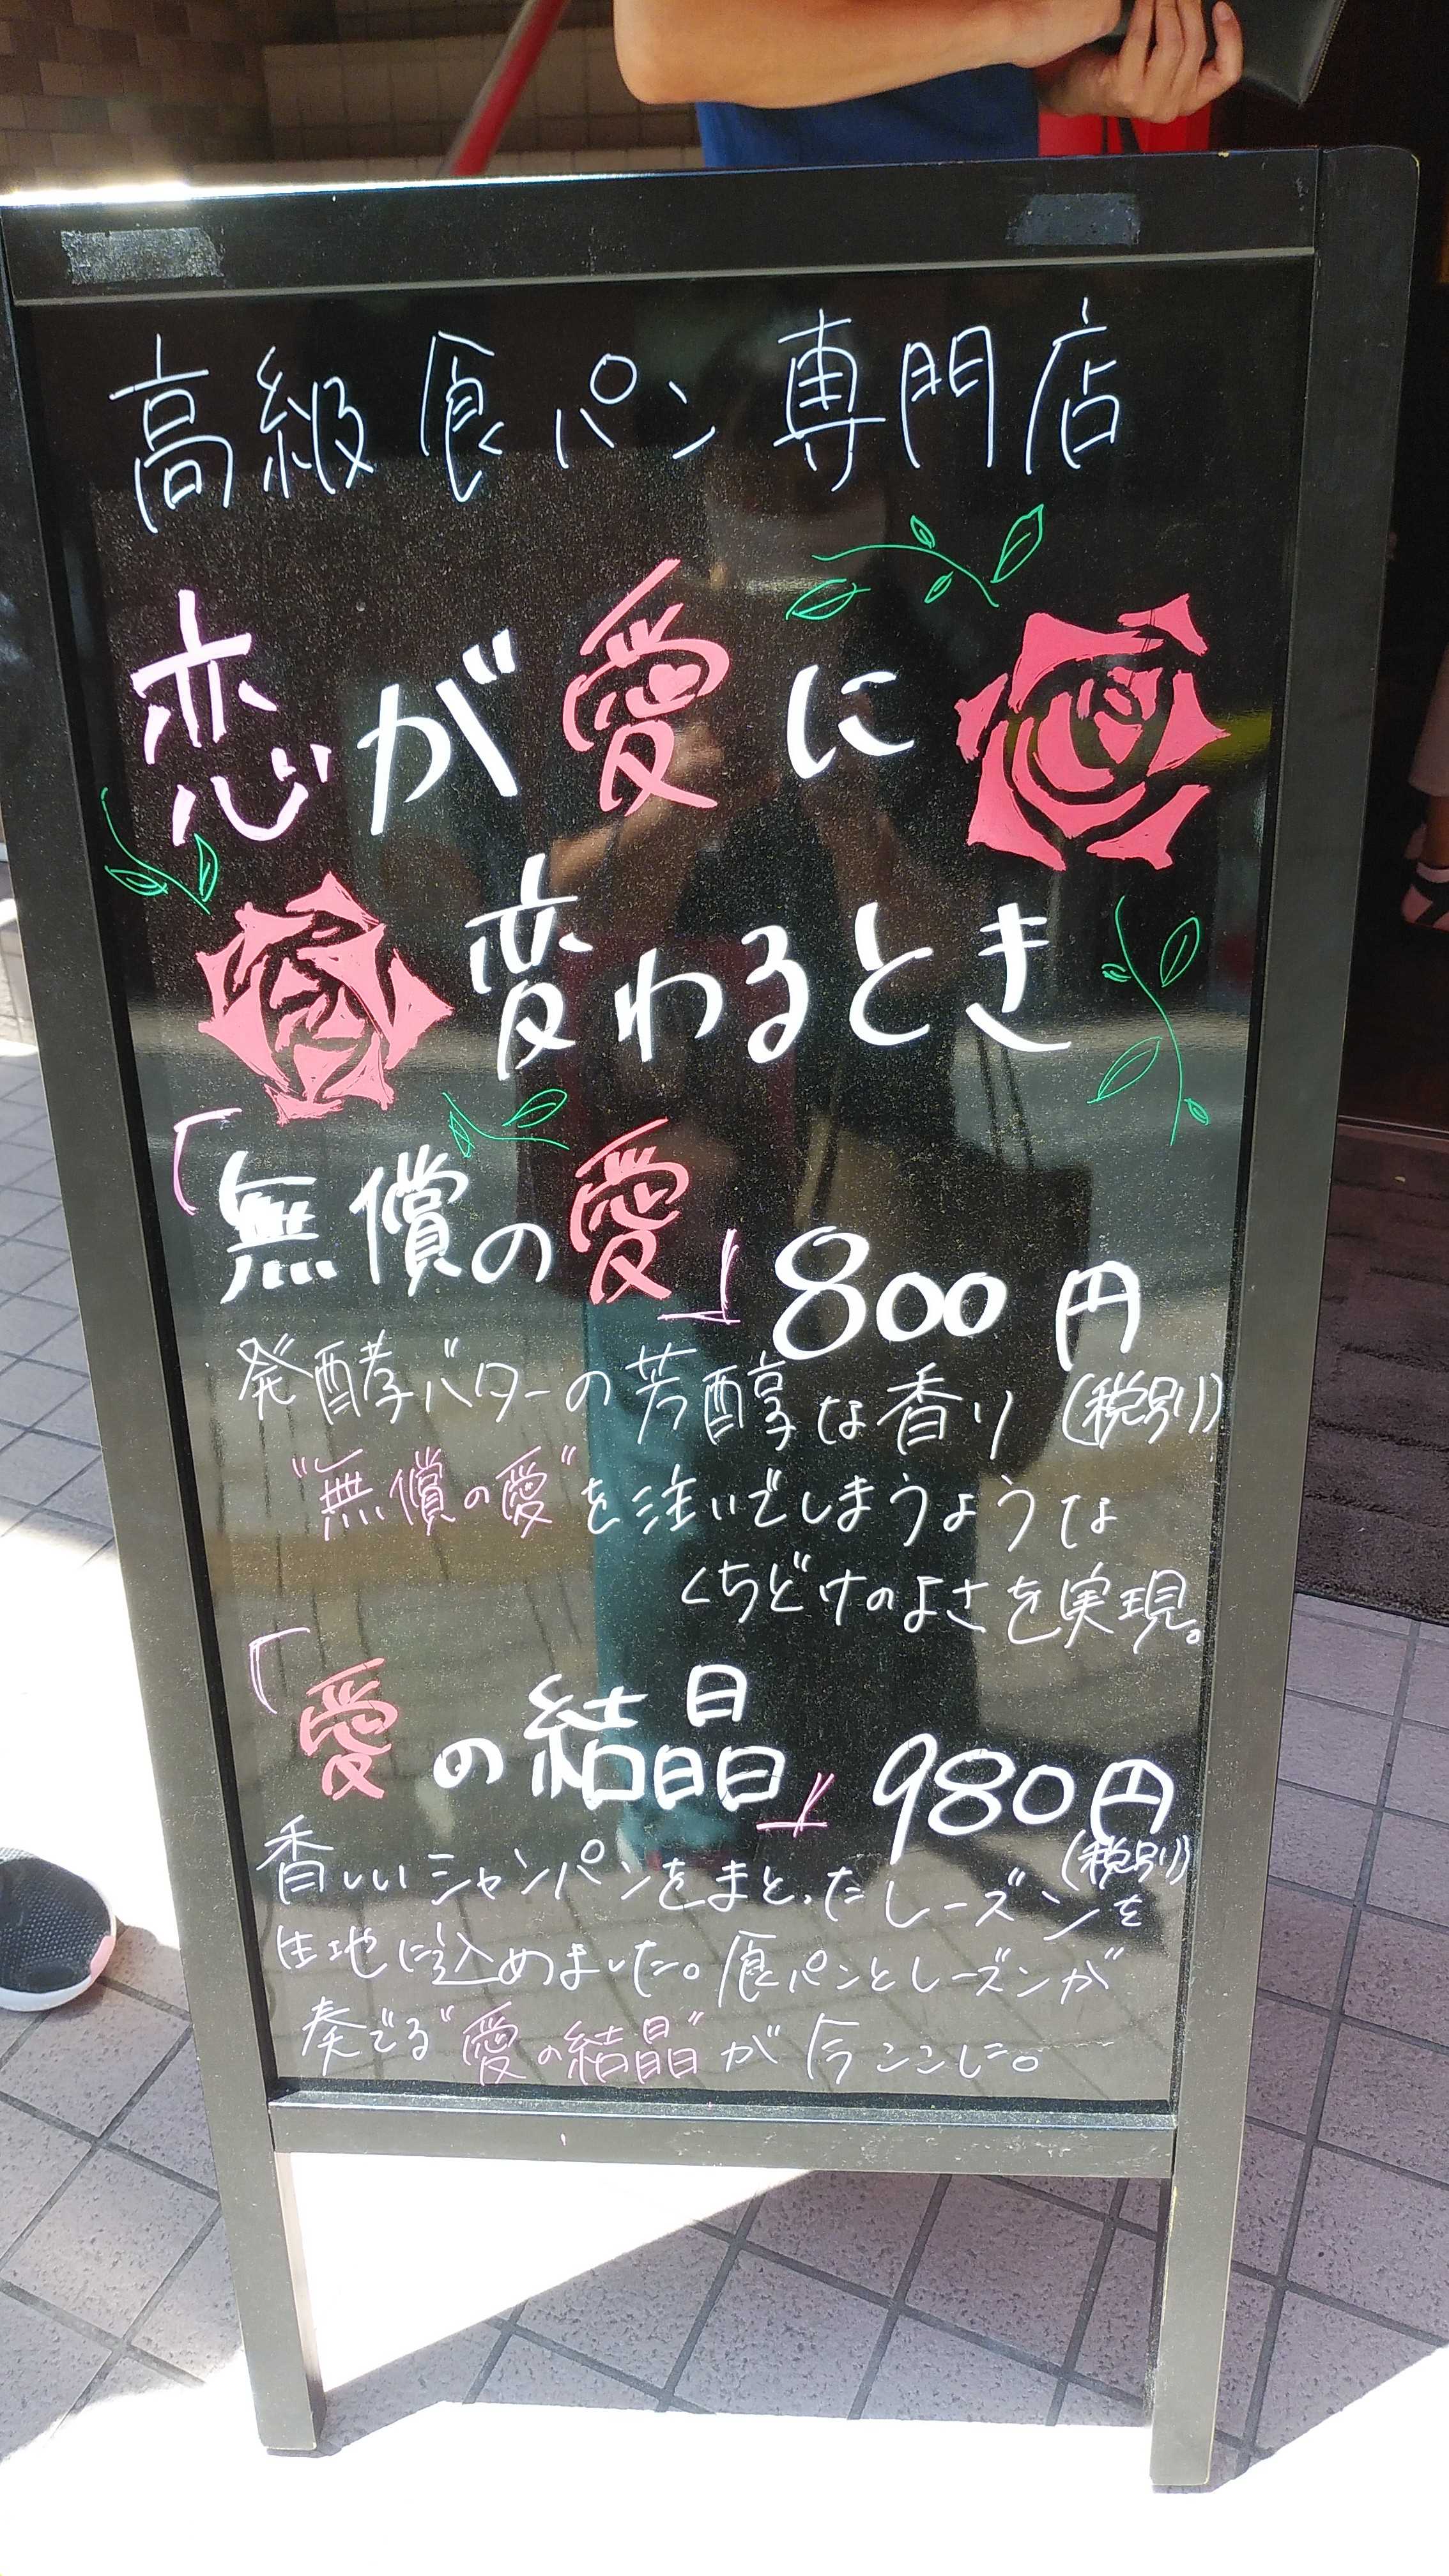 高級食パン専門店
恋が愛に
変わるとき
「無償の愛」800円
(税別)
発酵バターの芳醇な香り
"無償の愛"を注いでしまうような
くちどけのよさを実現。
「愛の結晶」980円
(税別)
香しいシャンパンをまとったレーズンを
生地に込めました。食パンとレーズンが
奏でる"愛の結晶"が今ここに。